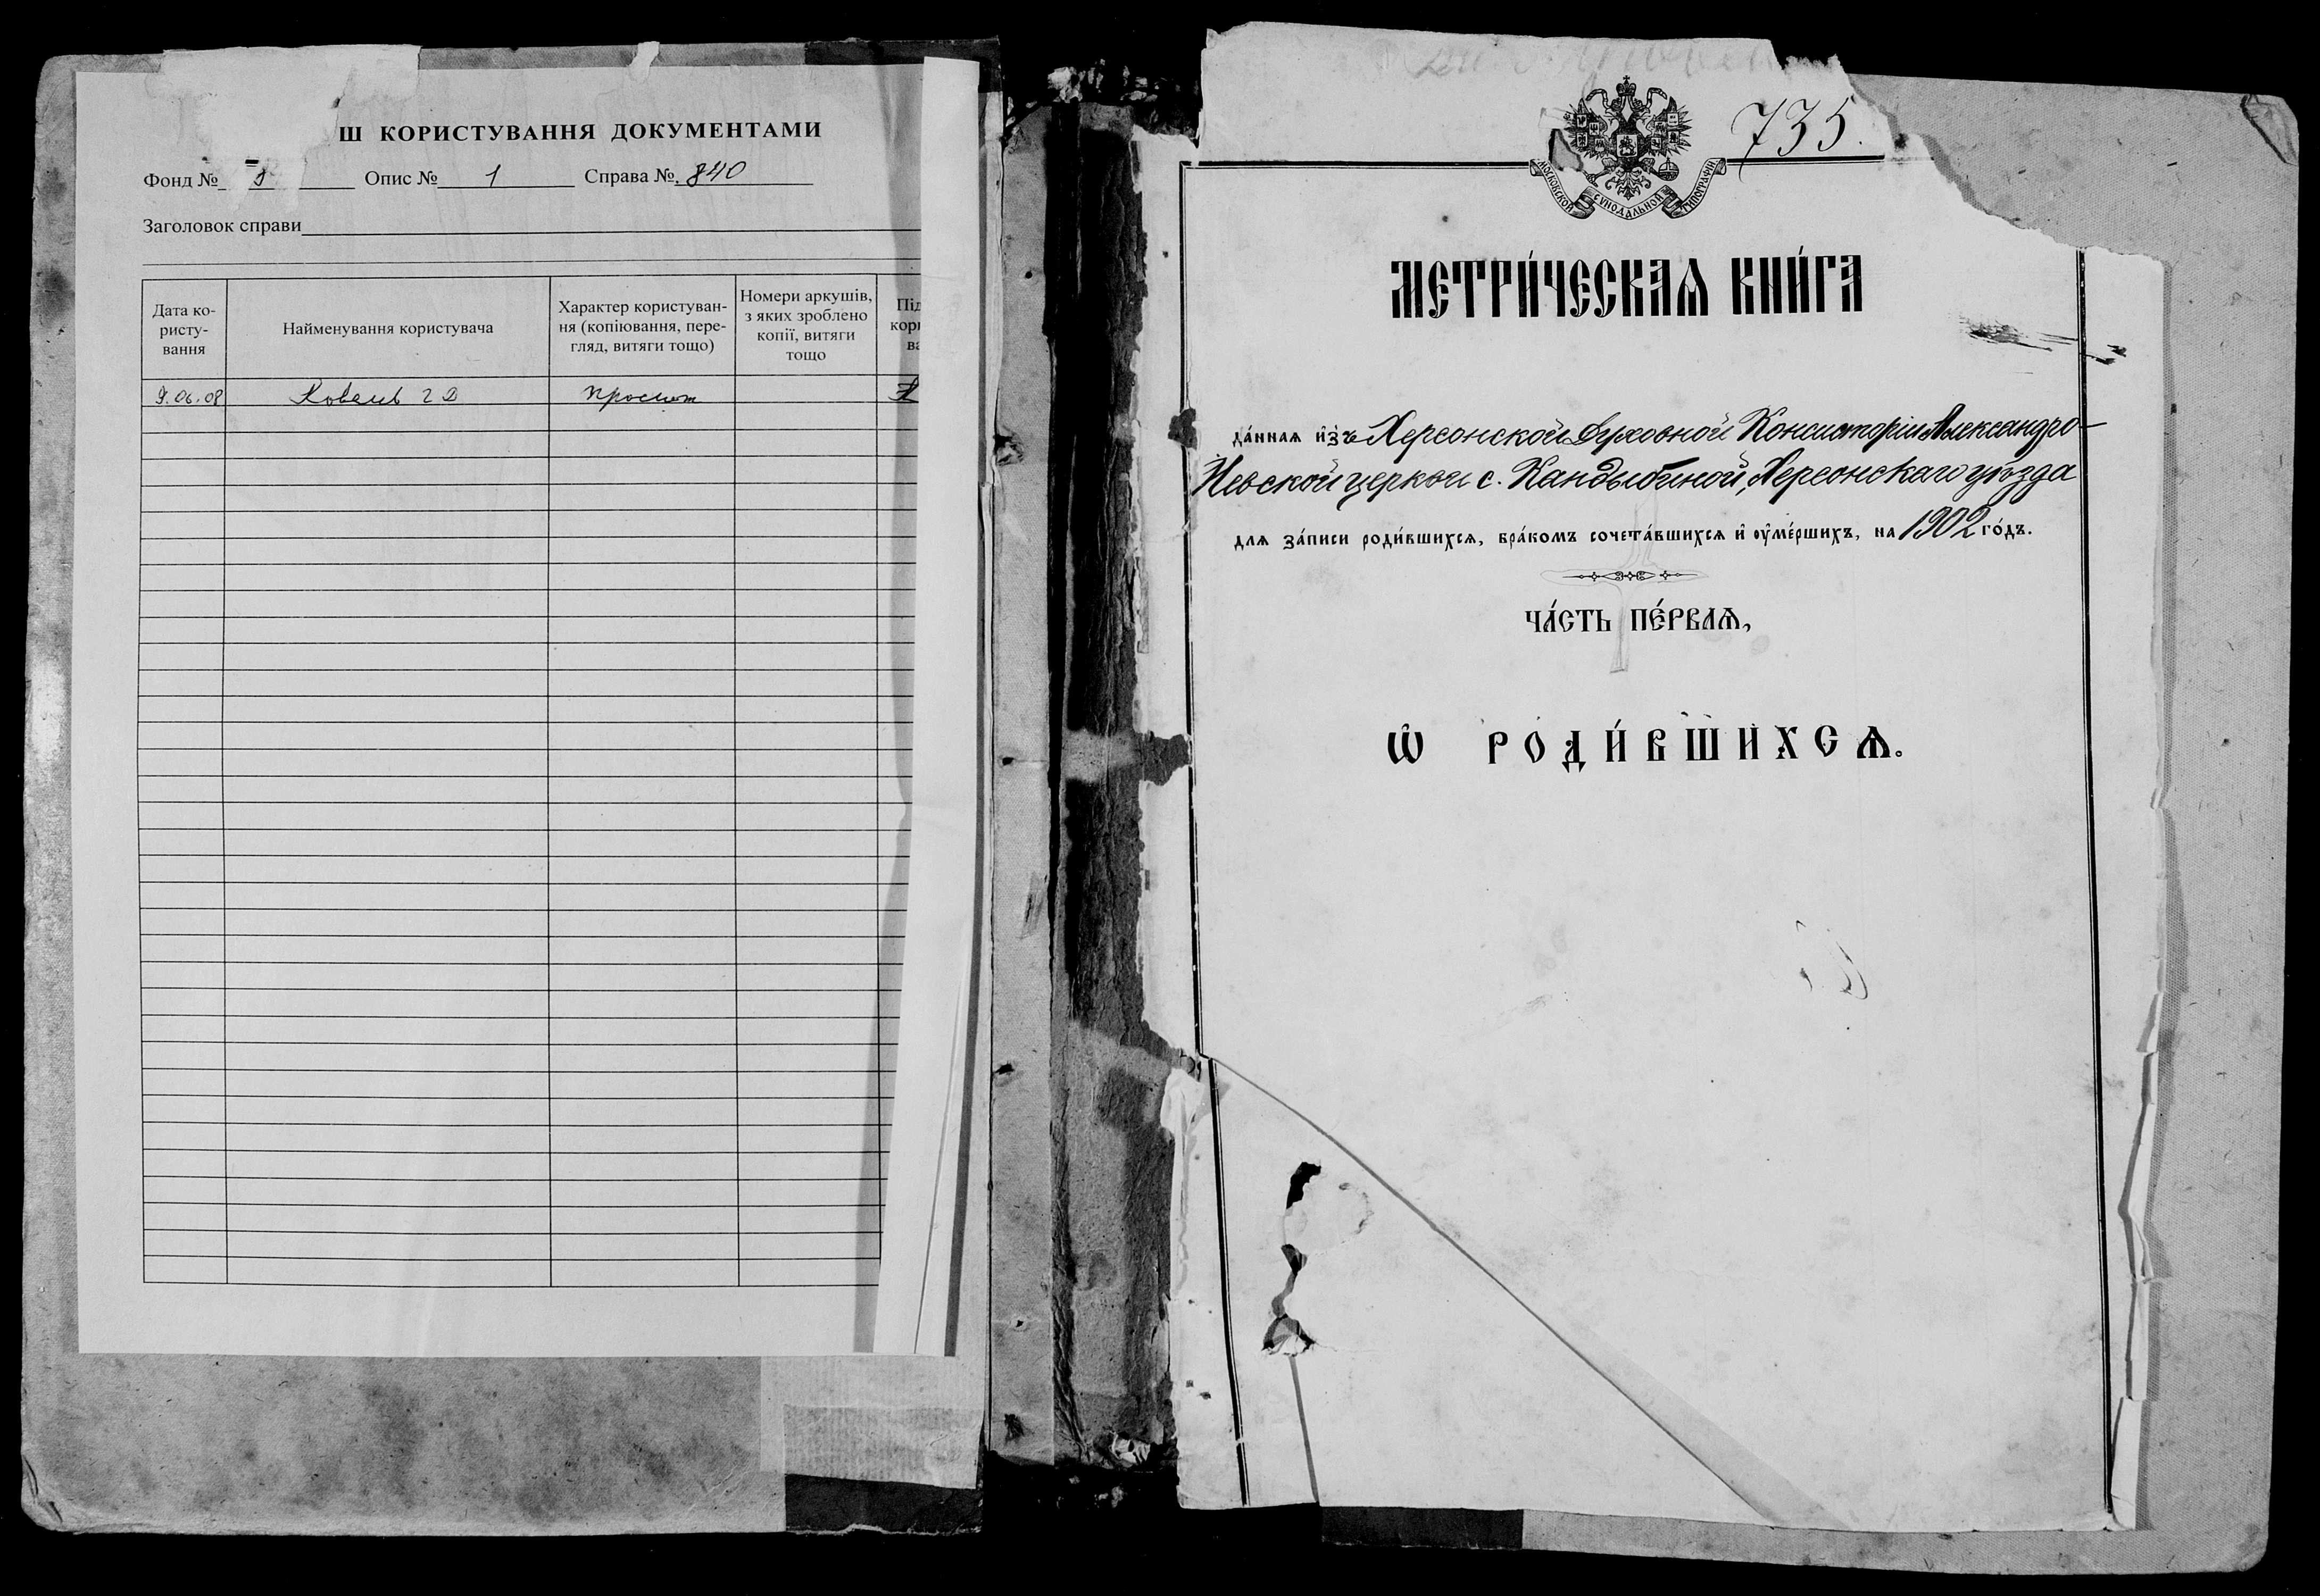 Ш КОРИСТУВАННЯ ДОКУМЕНТАМИ
Фонд № Опис № 1 Справа № 840
Заголовок справи
Дата ко-
ристу-
вання
Найменування користувача
Характер користуван-
ня (копіювання, пере-
гляд, витяги тощо)
Номери аркушів,
з яких зроблено
копії, витяги
тощо
Під
кор
ва
9.06.08
735.
МОСКОВСКОЙ СѴНОДАЛЬНОЙ ТИПОГРАФІИ
МЕТРИ́ЧЕСКАѦ КНИ́ГА
да́ннаѧ и҆зъ Херсонской Духовной Консисторіи Александро-
Невской церкви с. Кандыбиной, Херсонскаго уѣзда
длѧ за́писи роди́вшихсѧ, бра́комъ сочета́вшихсѧ и҆ оу҆ме́ршихъ, на 1902 го́дъ.
ЧА́СТЬ ПЕ́РВАѦ,
Ѡ҆ РОДИ́ВШИХСѦ.